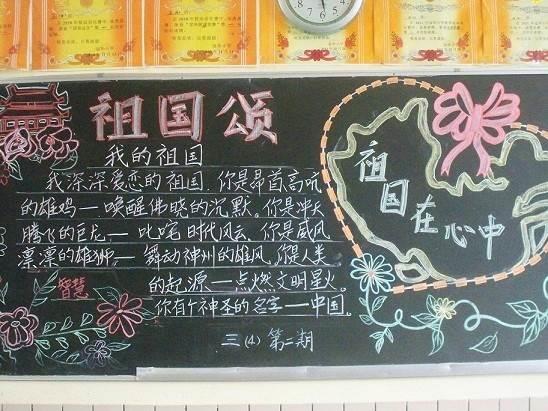 祖国颂
我的祖国
我深深爱恋的祖国.你是昂首高吭
的雄鸡——唤醒佛晓的沉默。你是冲天
腾飞的巨龙——叱咤时代风云,你是威风
凛凛的雄狮——舞动神州的雄风,你是人类
的起源——点燃文明星火。
你有个神圣的名字——中国。
智慧
三(4)第二期
祖国在心中